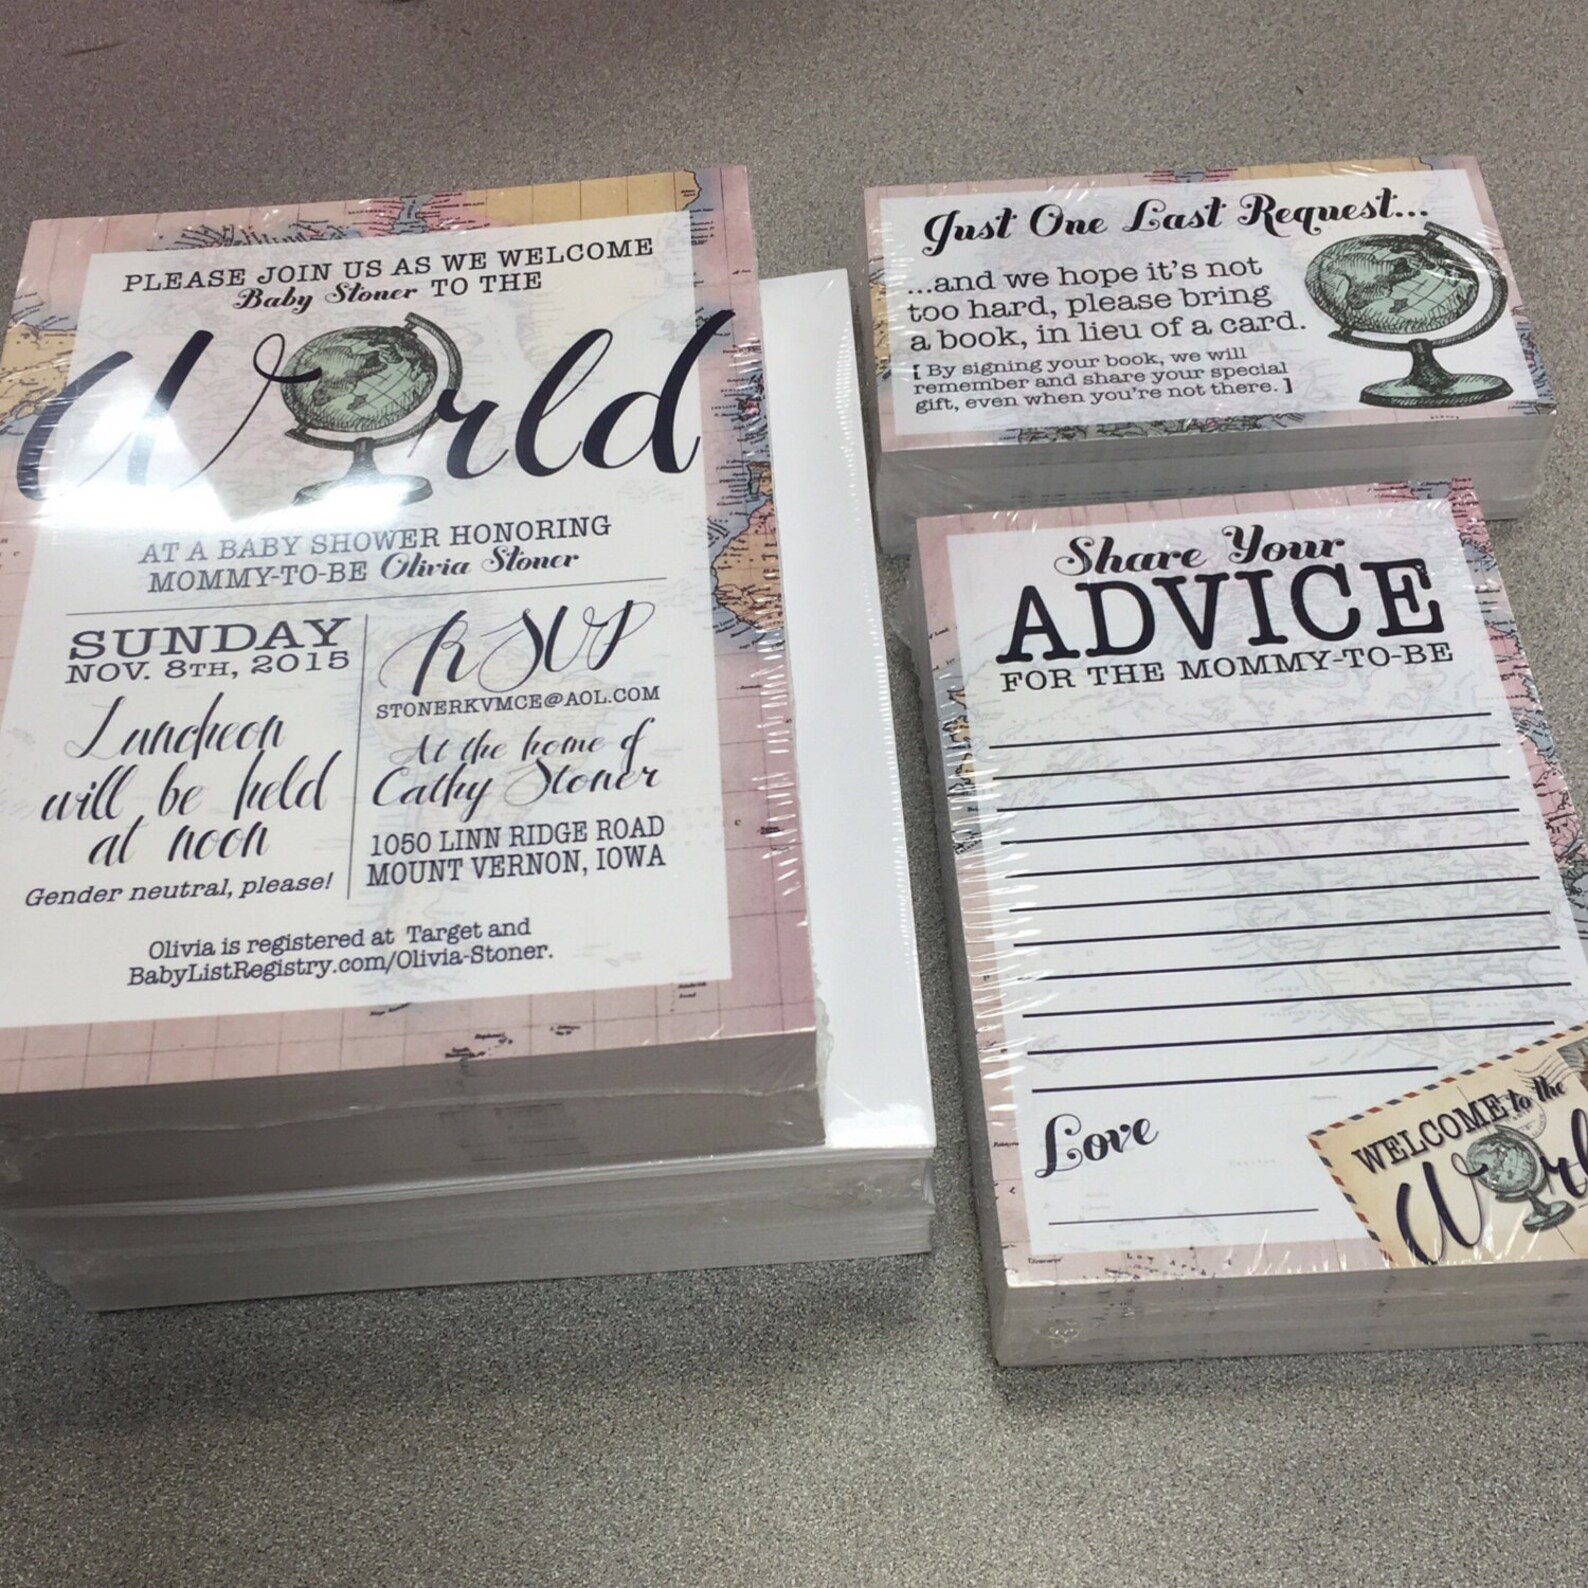 PLEASE JOIN US AS WE WELCOME
Baby Stoner TO THE
World
AT A BABY SHOWER HONORING
MOMMY-TO-BE Olivia Stoner
SUNDAY
NOV. 8TH, 2015
Luncheon
will be held
at noon
Gender neutral, please!
RSVP
STONERKVMCE@AOL.COM
At the home of
Cathy Stoner
1050 LINN RIDGE ROAD
MOUNT VERNON, IOWA
Olivia is registered at Target and
BabyListRegistry.com/Olivia-Stoner.
Just One Last Request...
...and we hope it's not
too hard, please bring
a book, in lieu of a card.
[ By signing your book, we will
remember and share your special
gift, even when you're not there. ]
Share Your
ADVICE
FOR THE MOMMY-TO-BE
Love
WELCOME to the
Worl